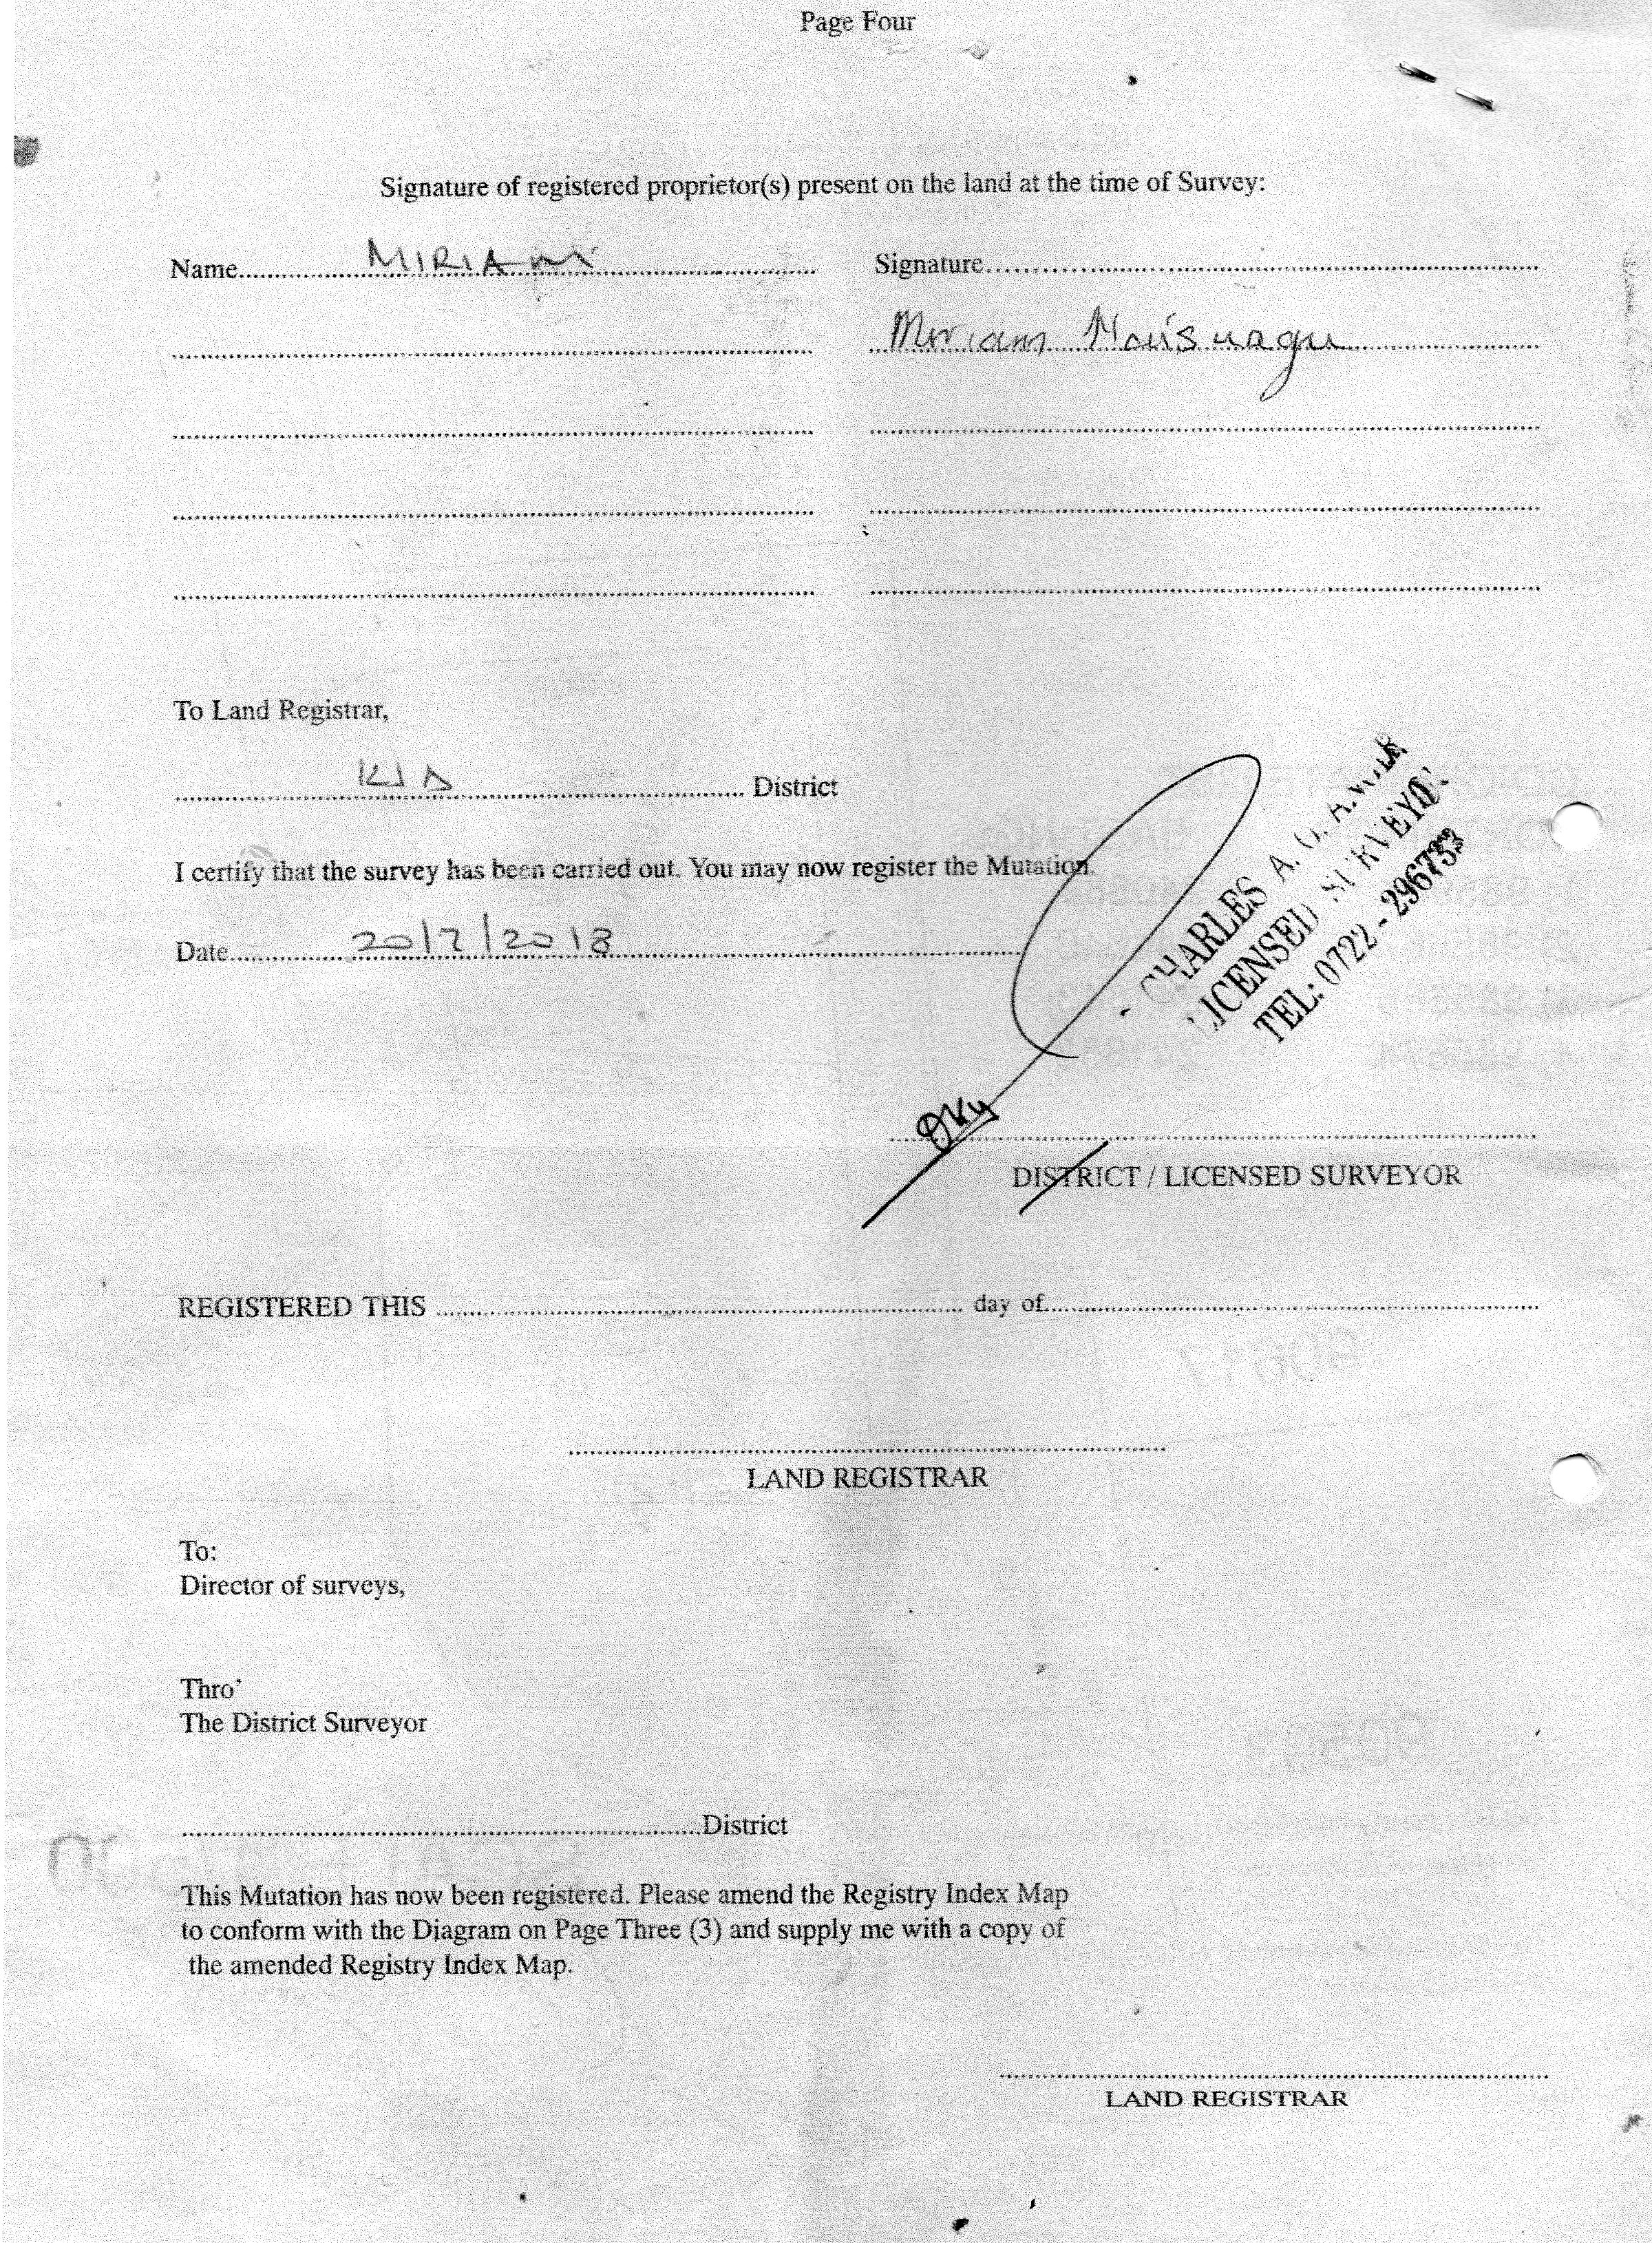 Page Four
Signature of registered proprietor(s) present on the land at the time of Survey:
Name MIRIAM Signature
Miriam
To Land Registrar,
KJD District
I certify that the survey has been carried out. You may now register the Mutation.
Date 20/2/2018
CHARLES A. O.
LICENSED SURVEYOR
TEL: 0722 - 296733
DISTRICT / LICENSED SURVEYOR
REGISTERED THIS day of
LAND REGISTRAR
To:
Director of surveys,
Thro'
The District Surveyor
District
This Mutation has now been registered. Please amend the Registry Index Map
to conform with the Diagram on Page Three (3) and supply me with a copy of
the amended Registry Index Map.
LAND REGISTRAR